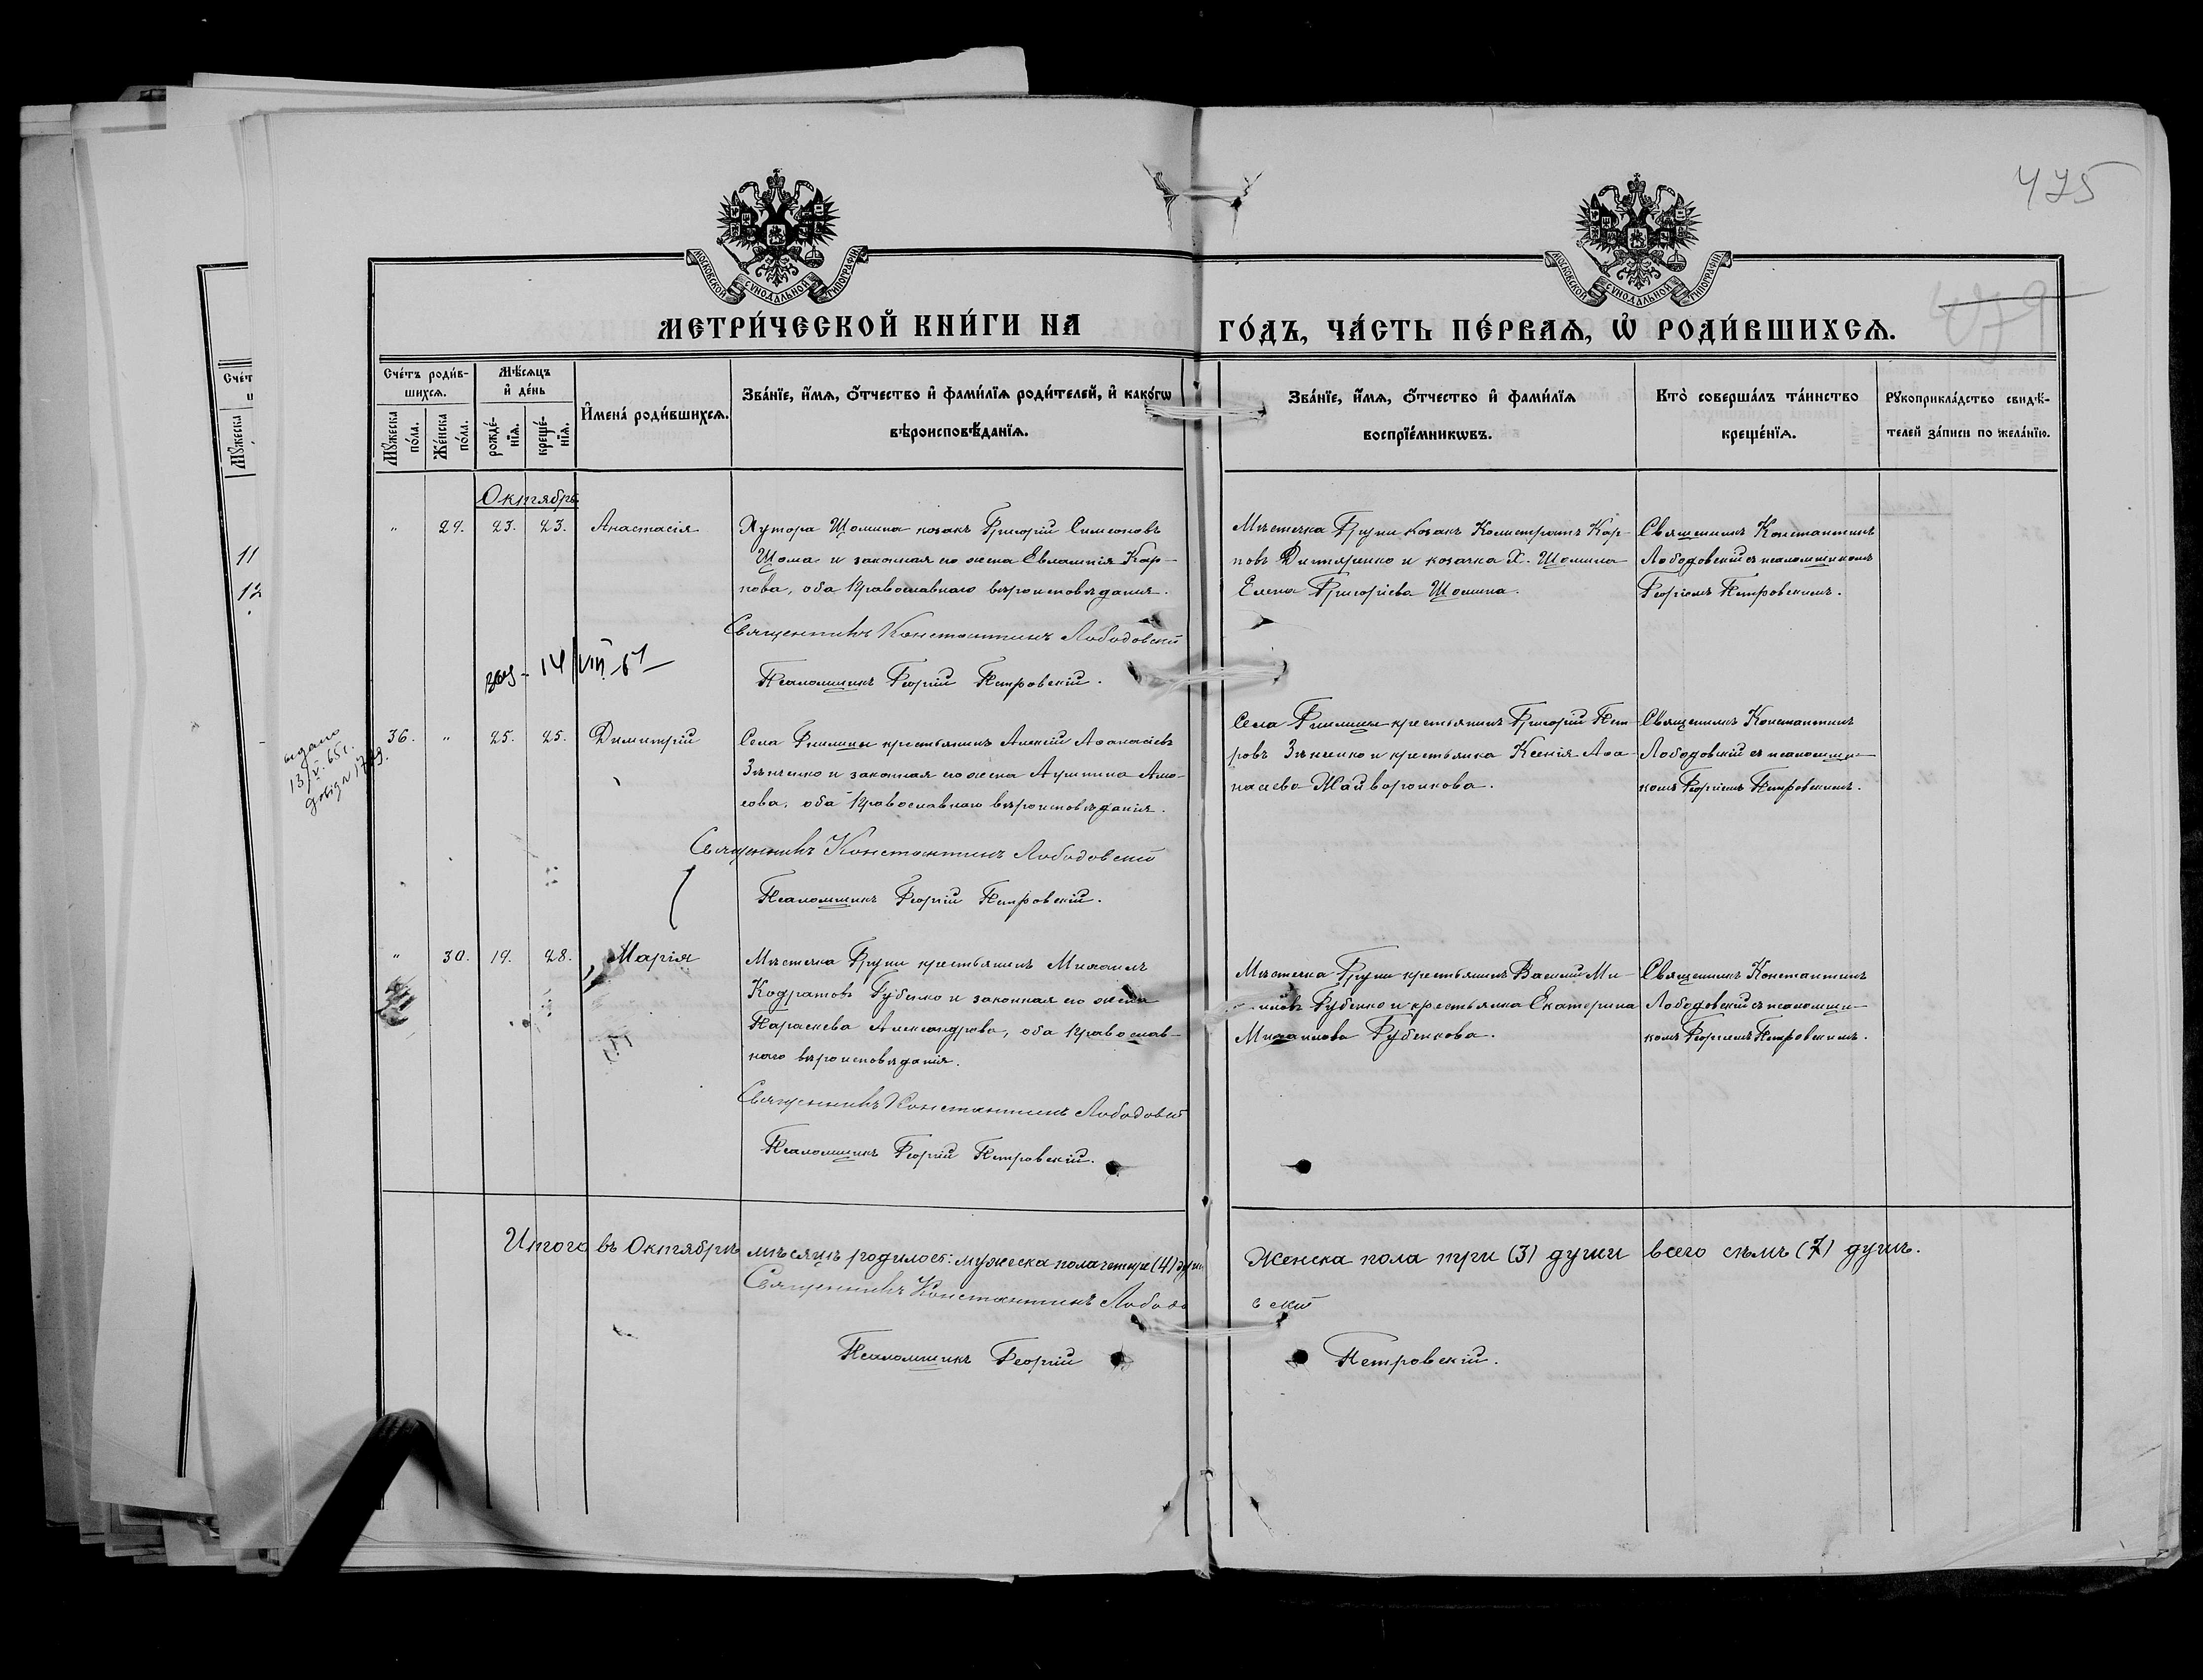 475
МОСКОВСКОЙ СѴНОДАЛЬНОЙ ТИПОГРАФІИ
МОСКОВСКОЙ СѴНОДАЛЬНОЙ ТИПОГРАФІИ
МЕТРИ́ЧЕСКОЙ КНИ́ГИ НА ГО́ДЪ, ЧА́СТЬ ПЕ́РВАѦ, Ѡ҆ РОДИ́ВШИХСѦ.
Сче́тъ роди́в-
шихсѧ.
Мꙋжеска по́ла.
Же́нска по́ла.
Мѣ́сѧцъ
и҆ де́нь
рожде́-
нїѧ.
креще́-
нїѧ.
И҆мена̀ роди́вшихсѧ.
Зва́нїе, и҆́мѧ, ѻ҆́тчество и҆ фами́лїѧ роди́телей, и҆ како́гѡ
вѣроисповѣ́данїѧ.
Зва́нїе, и҆́мѧ, ѻ҆́тчество и҆ фами́лїѧ
воспрїе́мникѡвъ.
Кто̀ соверша́лъ та́инство
креще́нїѧ.
Рꙋкоприкла́дство свидѣ́-
телей за́писи по жела́нїю.
Сче́т
Мꙋжеска
11
12
Октябрь
" 29. 23. 23. Анастасія
Хутора Шомина козакъ Григорій Симеоновъ
Шома и законная его жена Евлампія Кар-
пова, оба Православнаго вѣроисповѣданія.
Священникъ Константинъ Лободовскій
Псаломщикъ Георгій Петровскій.
Мѣстечка Груни козакъ Калистратъ Кар-
повъ Дитяренко и козачка Х. Шомина
Елена Григоріева Шомина.
Священникъ Константинъ
Лободовскій съ псаломщикомъ
Георгіемъ Петровскимъ.
14/VIII-61
видано
13/V. 65г.
36. " 25. 25. Димитрій
Села крестьянинъ Алексій Аѳанасіевъ
Зѣнченко и законная его жена Амо-
сова, оба Православнаго вѣроисповѣданія.
Священникъ Константинъ Лободовскій
Псаломщикъ Георгій Петровскій.
Села крестьянинъ Григорій Пет-
ровъ Зѣнченко и крестьянка Ксенія Аѳа-
насіева Майворонкова.
Священникъ Константинъ
Лободовскій съ псаломщи-
комъ Георгіемъ Петровскимъ.
" 30. 19. 28. Марія
Мѣстечка Груни крестьянинъ Михаилъ
Кодратовъ Губенко и законная его жена
Параскева Александрова, оба Православ-
наго вѣроисповѣданія.
Священникъ Константинъ Лободовскій
Псаломщикъ Георгій Петровскій.
Мѣстечка Груни крестьянинъ Василій Ми-
Губенко и крестьянка Екатерина
Михаилова Губенкова.
Священникъ Константинъ
Лободовскій съ псаломщи-
комъ Георгіемъ Петровскимъ.
Итого въ Октябрѣ мѣсяцѣ родилось: мужеска пола четыре (4) души Женска пола три (3) души всего семь (7) душъ.
Священникъ Константинъ Лободовскій
Псаломщикъ Георгій Петровскій.